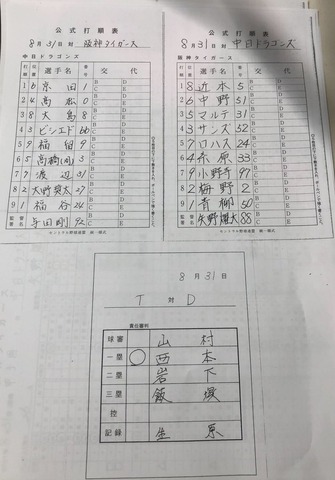 公式打順表
8月31日対 阪神タイガース
中日ドラゴンズ
打順 位置 選手名 番号 交代
1 6 京田 1
2 4 高松 0
3 8 大島 8
4 3 ビシエド 66
5 9 福留 9
6 5 高橋(周) 3
7 7 渡辺 31
8 2 木下拓 27
9 1 福谷 24
監督 与田剛 92
セントラル野球連盟
公式打順表
8月31日対 中日ドラゴンズ
阪神タイガース
打順 位置 選手名 番号 交代
1 8 近本 5
2 6 中野 51
3 5 マルテ 31
4 3 サンズ 52
5 7 ロハス 24
6 4 糸原 33
7 9 小野寺 97
8 2 梅野 2
9 1 青柳 50
監督 矢野燿大 88
セントラル野球連盟
8月31日
T 対 D
責任審判
球審 山村
一塁 ○ 西本
二塁 岩下
三塁 飯塚
控
記録 生原